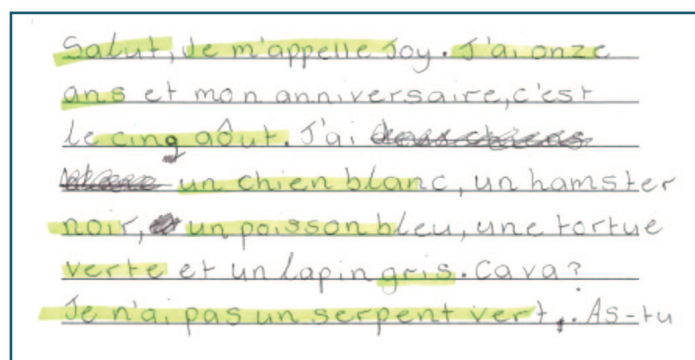 Salut, Je m'appelle Joy. J'ai onze
ans et mon anniversaire, c'est
le cinq aôut. J'ai
un chien blanc, un hamster
noir, un poisson bleu, une tortue
verte et un lapin gris. Ca va?
Je n'ai pas un serpent vert,. As-tu